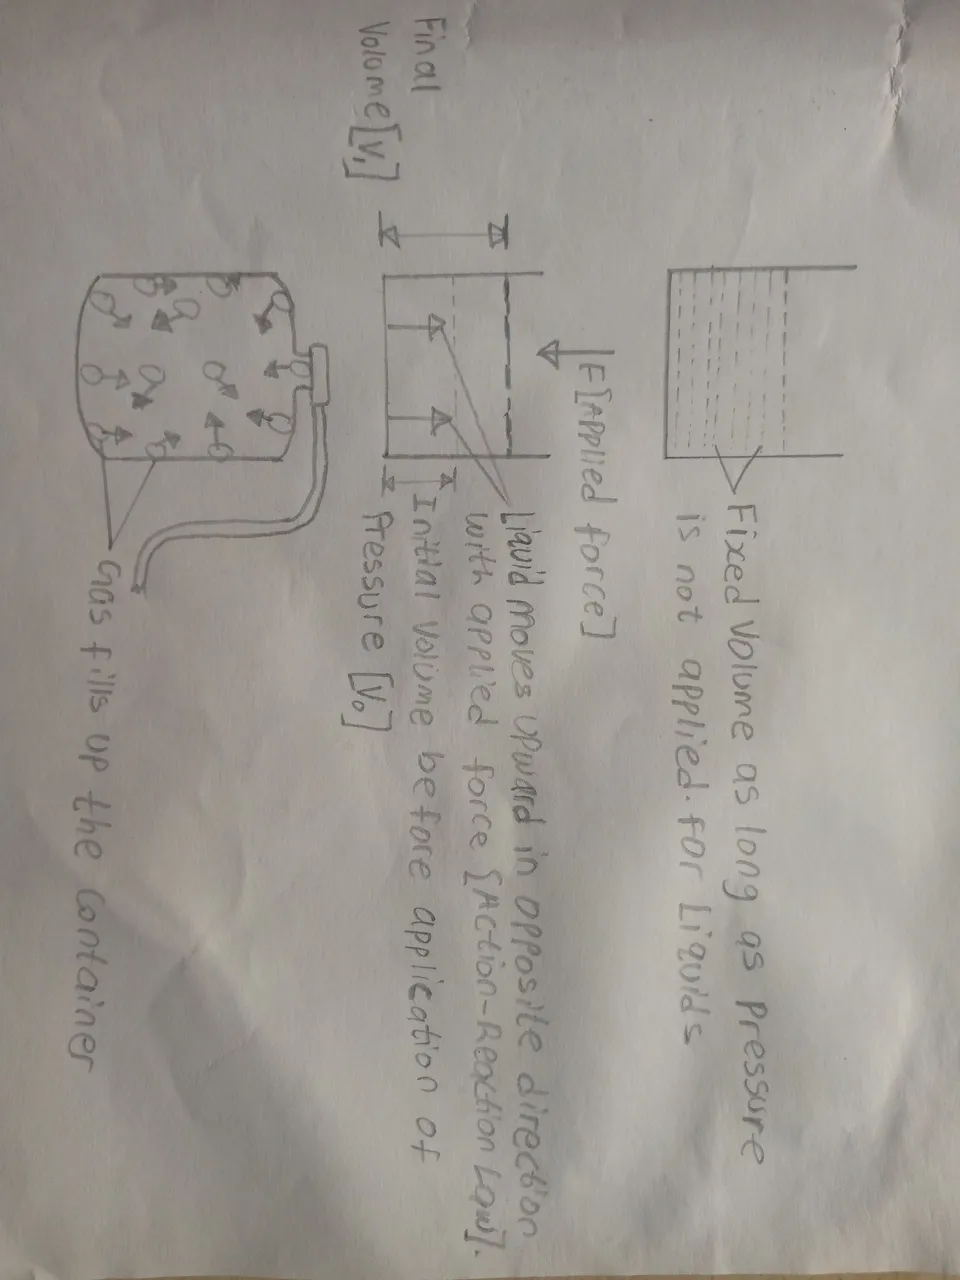 Fixed volume as long as pressure
is not applied. for Liquids
F [Applied force]
Liquid moves upward in opposite direction
with applied force [Action-Reaction Law].
Final
Volume [V₁]
Initial volume before application of
Pressure [V₀]
Gas fills up the container